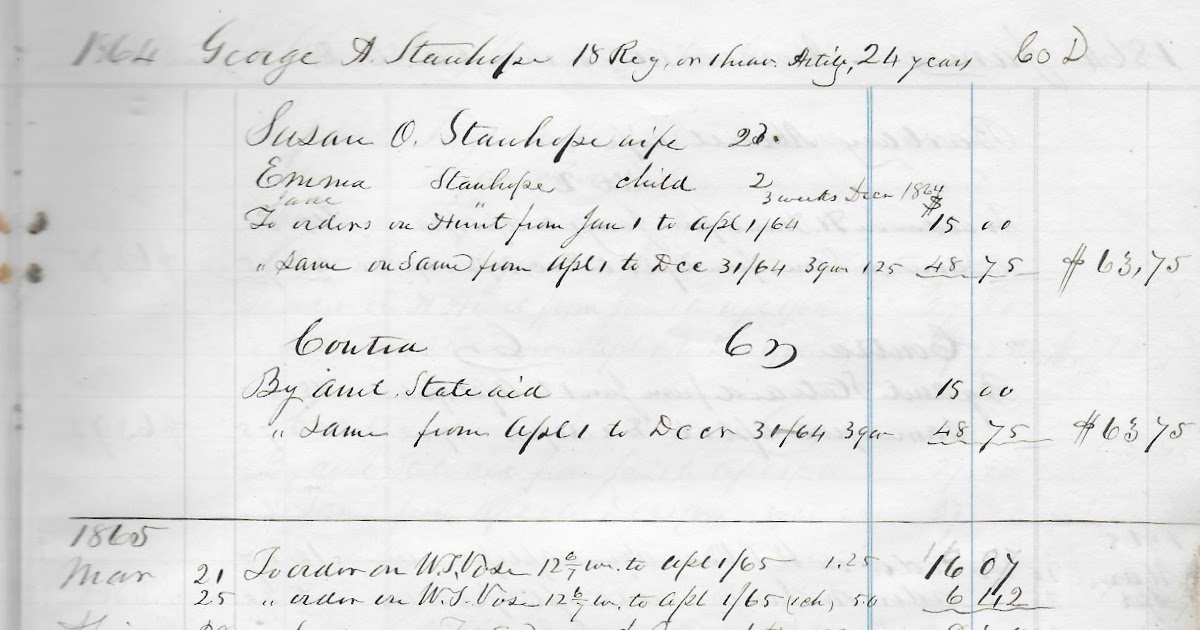 1864 George A. Stanhope 18 Reg. or 1 heav. Artily, 24 years Co D
Susan O. Stanhope wife 23.
Emma Stanhope child 2
Jane 3 weeks Decr 1864
To orders on Hunt from Jan 1 to Apl 1/64 $15 00
" Same on Same from Apl 1 to Dec 31/64 39w 125 48 75 $63,75
Contra Cr
By amt. State aid 15 00
" Same from Apl 1 to Decr 31/64 39w 48 75 $63 75
1865
Mar 21 To order on W.T. Vose 12 6/7 w. to Apl 1/65 1.25 16 07
25 " order on W.T. Vose 12 6/7 w. to Apl 1/65 (ch) 50 6 42